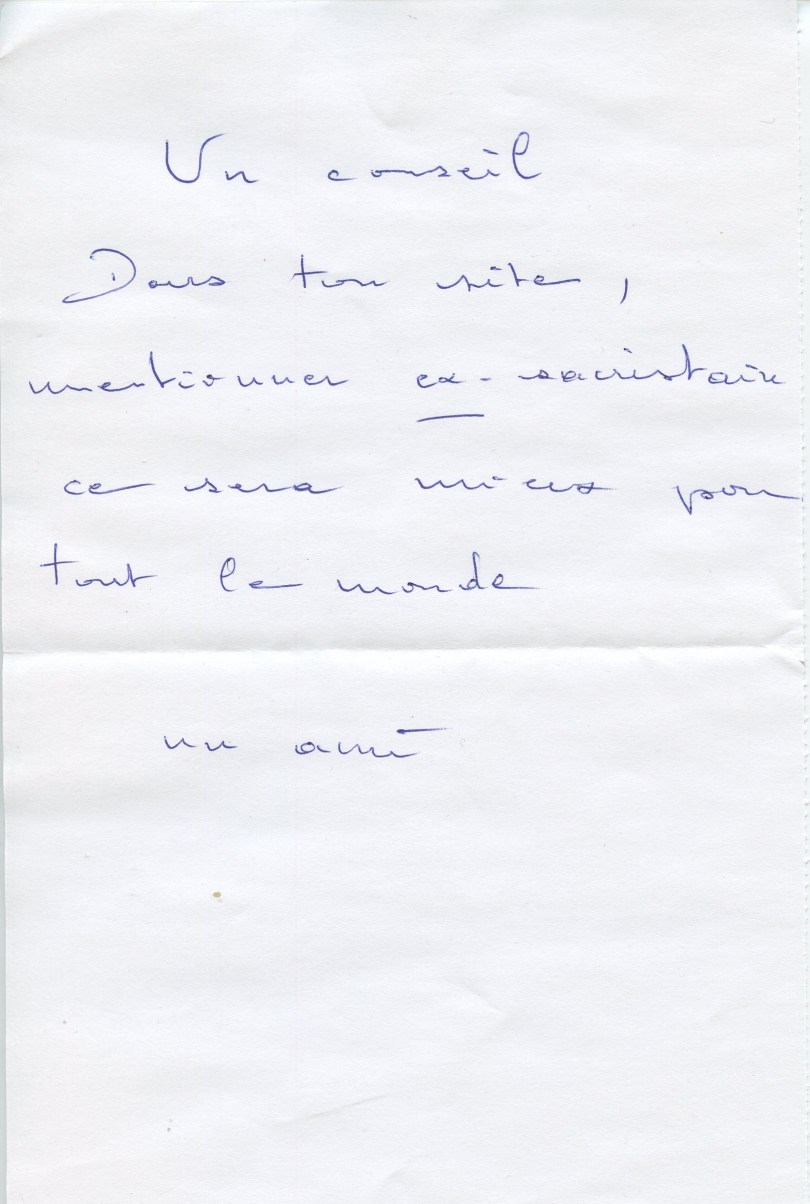 Un conseil
Dans ton site,
mentionner ex-sacristain
ce sera mieux pour
tout le monde
un ami